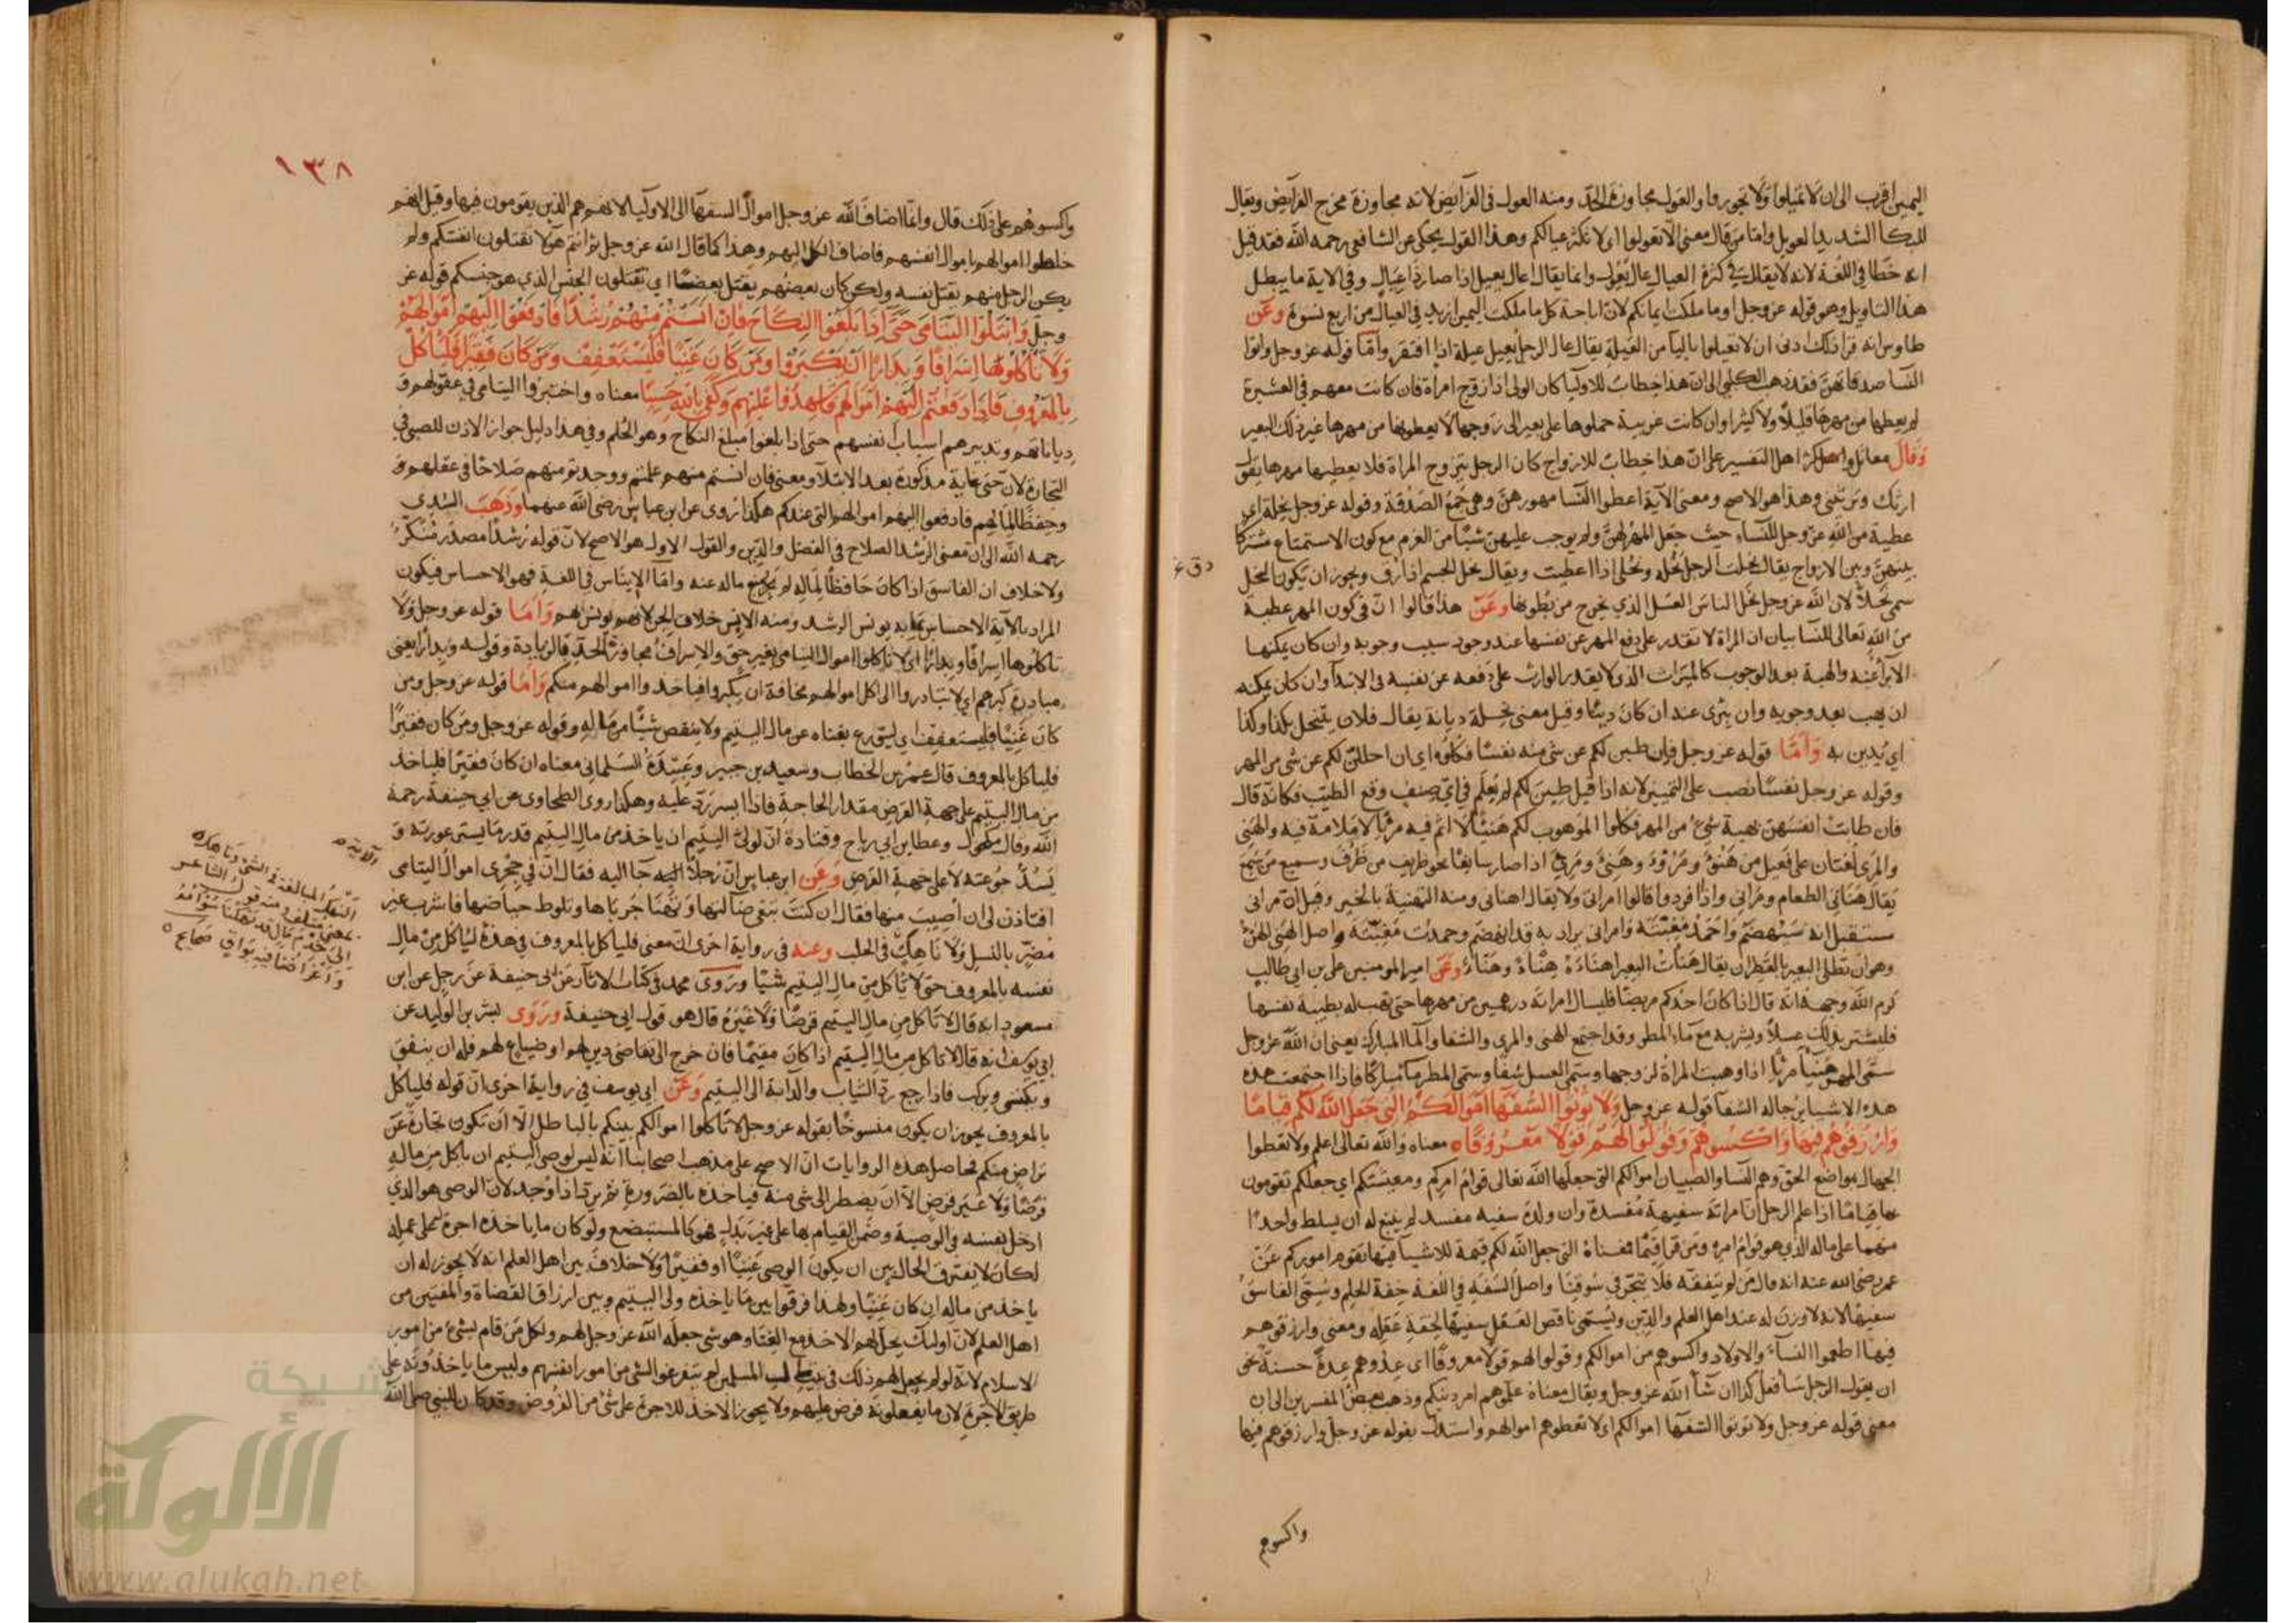 اليمين اقرب الى ان لا تميلوا ولا تجوروا والعول مجاوزة الحد ومنه العول فى الفرائض لانه مجاوزة مخرج الفرائض ويقال
للبكا الشديد العويل واما من قال معنى الا تعولوا اى لا تكثر عيالكم وهذا القول يحكى عن الشافعى رحمه الله فقد قيل
انه خطا فى اللغة لانه لا يقال فى كثرة العيال عال يعول وانما يقال اعال يعيل اذا صار ذا عيال وفى الاية ما يبطل
هذا التاويل وهو قوله عز وجل او ما ملكت ايمانكم لان اباحة كل ما ملكت اليمين ازيد فى العيال من اربع نسوة وعن
طاوس انه قرا ذلك ادنى ان لا تعيلوا باليا من العيلة يقال عال الرجل يعيل عيلة اذا افتقر واما قوله عز وجل واتوا
النسا صدقاتهن فقد ذهب الكلبى الى ان هذا خطاب للاوليا كان الولى اذا زوج امراة فان كانت معهم فى العشيرة
لم يعطها من مهرها قليلا ولا كثيرا وان كانت غريبة حملوها على بعير الى زوجها لا يعطونها من مهرها غير ذلك البعير
وقال مقاتل واكثر اهل التفسير على ان هذا خطاب للازواج كان الرجل يتزوج المراة فلا يعطيها مهرها يقول
ارثك وترثينى وهذا هو الاصح ومعنى الآية اعطوا النسا مهورهن وهى جمع الصدقة وقوله عز وجل نحلة اى
عطية من الله عز وجل للنساء حيث جعل المهر لهن ولم يوجب عليهن شيئا من الغرم مع كون الاستمتاع مشتركا
بينهن وبين الازواج يقال نحلت الرجل نحلة ونحلى اذا اعطيت ويقال نحل الجسم اذا رق ويجوز ان يكون النحل
سمى نحلا لان الله عز وجل نحل الناس العسل الذي يخرج من بطونها وعن هذا قالوا ان فى كون المهر عطية
من الله تعالى للنسا بيان ان المراة لا تقدر على دفع المهر عن نفسها عند وجود سبب وجوبه وان كان يمكنها
الابراء عنه والهبة بعد الوجوب كالميراث الذى لا يقدر الوارث على دفعه عن نفسه فى الابتدآ وان كان يمكنه
ان يهب بعد وجوبه وان يبرى عنه ان كان دينا وقيل معنى نحلة ديانة يقال فلان ينتحل بكذا وكذا
اي يدين به واما قوله عز وجل فان طبن لكم عن شى منه نفسا فكلوه اى ان احللن لكم عن شى من المهر
وقوله عز وجل نفسا نصب على التمييز لانه اذا قيل طبن لكم لم يعلم فى اي صنف وقع الطيب فكانه قال
فان طابت انفسهن بهبة شئ من المهر فكلوا الموهوب لكم هنيئا لا اثم فيه مريا لا ملامة فيه والهنى
والمرى لغتان على فعيل من هنؤ ومرؤ وهنى ومرى اذا صار سايغا نحو ظريف من ظرف وسميع من سمع
يقال هنانى الطعام ومرانى واذا افردوا قالوا امرانى ولا يقال اهنانى ومنه التهنية بالخير وقيل ان مرانى
مستقبل انه سينهضم واحمد مغبته وامرانى يراد به قد انهضم وحمدت مغبته واصل الهنى الهنئ
وهو ان تطلى البعير بالقطران يقال هنات البعير اهناءة هناة وهناء وعن امير المومنين على بن ابى طالب
كرم الله وجهه انه قال اذا كان احدكم مريضا فليسال امراته درهمين من مهرها حتى تهب له بطيبة نفسها
فليشتر بذلك عسلا ويشربه مع ماء المطر وقد اجتمع الهنى والمرى والشفا والماء المبارك يعنى ان الله عز وجل
سمى المهر هنيا مريا اذا وهبت المراة لزوجها وسمى العسل شفا وسمى المطر ماء مباركا فاذا اجتمعت هذه
هذه الاشيا يرجا له الشفا قوله عز وجل ولا توتوا السفها اموالكم التى جعل الله لكم قياما
وارزقوهم فيها واكسوهم وقولوا لهم قولا معروفا ه معناه والله تعالى اعلم ولا تعطوا
الجهال بمواضع الحق وهم النسا والصبيان اموالكم التى جعلها الله تعالى قوام امركم ومعيشتكم اي جعلكم تقومون
بها قياما اذا علم الرجل ان امراته سفيهة مفسدة وان ولده سفيه مفسد لم ينبغ له ان يسلط واحدا
منهما على ماله الذي هو قوام امره ومن قرا قيما فمعناه التى جعل الله لكم قيمة للاشيآ فيها تقوم اموركم عن
عمر رضى الله عنه انه قال من لم يتفقه فلا يتجر فى سوقنا واصل السفه فى اللغة خفة الحلم وسمى الفاسق
سفيها لانه لا وزن له عند اهل العلم والدين ويسمى ناقص العقل سفيها لخفة عقله ومعنى وارزقوهم
فيها اطعموا النساء والاولاد واكسوهم من اموالكم وقولوا لهم قولا معروفا اى عدوهم عدة حسنة نحو
ان يقول الرجل سافعل كذا ان شآ الله عز وجل ويقال معناه علموهم امر دينكم وذهب بعض المفسرين الى ان
معنى قوله عز وجل ولا توتوا السفها اموالكم اى لا تعطوهم اموالهم واستدل بقوله عز وجل وارزقوهم فيها
واكسوهم
١٣٨
واكسوهم على ذلك قال وانما اضاف الله عز وجل اموال السفهآ الى الاوليآ لانهم هم الذين يقومون فيها وقيل انهم
خلطوا اموالهم باموال انفسهم فاضاف الكل اليهم وهذا كما قال الله عز وجل ثم انتم هولا تقتلون انفسكم ولم
يكن الرجل منهم يقتل نفسه ولكن كان بعضهم يقتل بعضا اي تقتلون الجنس الذي هو جنسكم قوله عز
وجل وابتلوا اليتامى حتى اذا بلغوا النكاح فان انستم منهم رشدا فادفعوا اليهم اموالهم
ولا تاكلوها اسرافا وبدارا ان يكبروا ومن كان غنيا فليستعفف ومن كان فقيرا فلياكل
بالمعروف فاذا دفعتم اليهم اموالهم فاشهدوا عليهم وكفى بالله حسيبا معناه واختبروا اليتامى فى عقولهم و
دياناتهم وتدبيرهم اسباب انفسهم حتى اذا بلغوا مبلغ النكاح وهو الحلم وفى هذا دليل جواز الاذن للصبى فى
التجارة لان حتى غاية مذكورة بعد الابتلآ ومعنى فان انستم منهم علمتم ووجدتم منهم صلاحا فى عقلهم و
وحفظا لمالهم فادفعوا اليهم اموالهم التى عندكم هكذا روى عن ابن عباس رضى الله عنهما وذهب السدى
رحمه الله الى ان معنى الرشد الصلاح فى الفضل والدين والقول الاول هو الاصح لان قوله رشدا مصدر منكر
ولا خلاف ان الفاسق اذا كان حافظا لماله لم يحجر ماله عنه واما الايناس فى اللغة فهو الاحساس فيكون
المراد بالآية الاحساس بما به يونس الرشد ومنه الانس خلاف الجن لانهم يونس بهم واما قوله عز وجل ولا
تاكلوها اسرافا وبدارا اى لا تاكلوا اموال اليتامى بغير حق والاسراف مجاوزة الحد فى الزيادة وقوله وبدارا يعنى
مبادرة كبرهم اي لا تبادروا الى اكل اموالهم مخافة ان يكبروا فياخذوا اموالهم منكم واما قوله عز وجل ومن
كان غنيا فليستعفف اى ليتورع بغناه عن مال اليتيم ولا ينقص شيئا من ماله وقوله عز وجل ومن كان فقيرا
فلياكل بالمعروف قال عمر بن الخطاب وسعيد بن جبير وعبيدة السلمانى معناه ان كان فقيرا فلياخذ
من مال اليتيم على جهة القرض مقدار الحاجة فاذا ايسر رد عليه وهكذا روى الطحاوى عن ابى حنيفة رحمه
الله وقال مكحول وعطا بن ابى رباح وقتادة ان لولى اليتيم ان ياخذ من مال اليتيم قدر ما يستر عورته و
يسد جوعته لا على جهة القرض وعن ابن عباس ان رجلا جا اليه فقال ان فى حجرى اموال اليتامى
افتاذن لى ان اصيب منها فقال ان كنت تبغى ضالتها وتهنا جرباها وتلوط حياضها فاشرب غير
مضر بالنسل ولا ناهك فى الحلب وعنه فى رواية اخرى ان معنى فلياكل بالمعروف فى هذه لياكل من مال
نفسه بالمعروف حتى لا ياكل من مال اليتيم شيئا وروى محمد فى كتاب الاثار عن ابى حنيفة عن رجل عن ابن
مسعود انه قال لا ياكل من مال اليتيم قرضا ولا غيره قال هو قول ابى حنيفة وروى بشر بن الوليد عن
ابى يوسف انه قال لا ياكل من مال اليتيم اذا كان مقيما فان خرج الى تقاضى دين لهم او ضياع لهم فله ان ينفق
ويكتسى ويركب فاذا رجع رد الثياب والدابة الى اليتيم وعن ابى يوسف فى رواية اخرى ان قوله فلياكل
بالمعروف يجوز ان يكون منسوخا بقوله عز وجل لا تاكلوا اموالكم بينكم بالباطل الا ان تكون تجارة عن
تراض منكم فحاصل هذه الروايات ان الاصح على مذهب اصحابنا انه ليس لوصى اليتيم ان ياكل من ماله
قرضا ولا غير قرض الا ان يضطر الى شى منه فياخذه بالضرورة ثم يرد اذا وجد لان الوصى هو الذي
ادخل نفسه فى الوصية وضمن القيام بها على غير بدل فهو كالمستبضع ولو كان ما ياخذه اجرة على عمله
لكان لا يفترق الحال بين ان يكون الوصى غنيا او فقيرا ولا خلاف بين اهل العلم انه لا يجوز له ان
ياخذ من ماله ان كان غنيا ولهذا فرقوا بين ما ياخذه ولى اليتيم وبين ارزاق القضاة والمفتين من
اهل العلم لان اوليك يحل لهم الاخذ مع الغنا وهو شى جعله الله عز وجل لهم ولكل من قام بشئ من امور
الاسلام لانه لو لم يجعل لهم ذلك فى بيت مال المسلمين لم يتفرغوا لشى من امور انفسهم وليس ما ياخذونه على
طريق الاجرة لان ما يفعلونه فرض عليهم ولا يجوز الاخذ للاجرة على شئ من الفروض وقد كان للنبى صلى الله
النهك المبالغة فى الشئ
شبكة
الألوكة
www.alukah.net